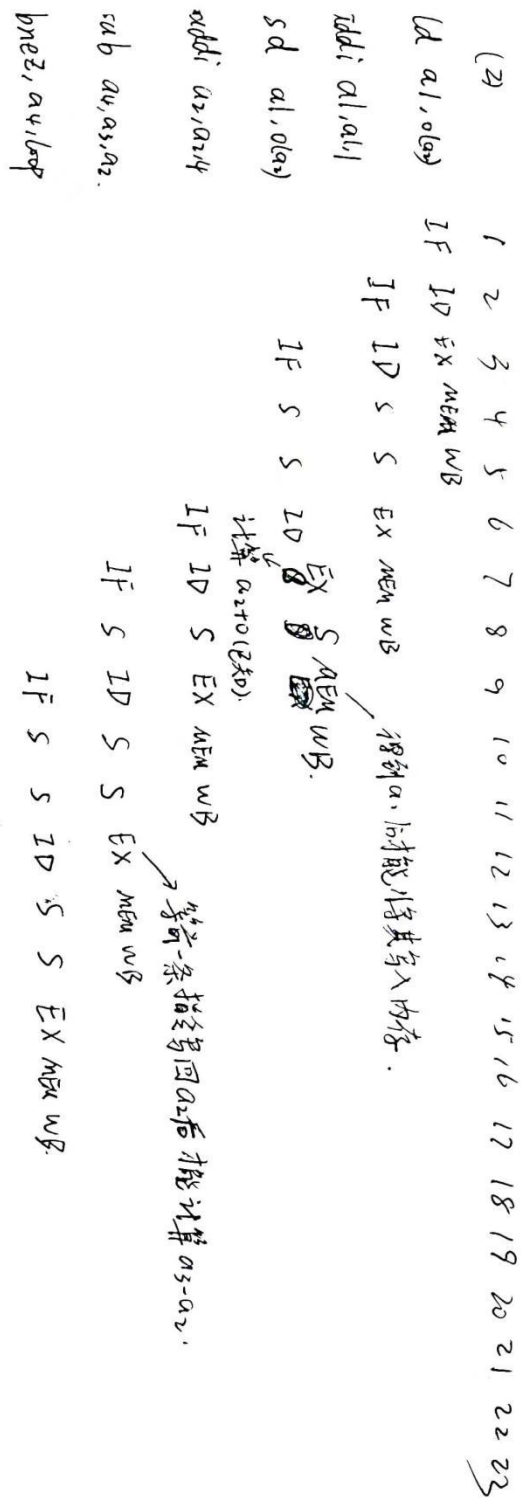 (2) 1 2 3 4 5 6 7 8 9 10 11 12 13 14 15 16 17 18 19 20 21 22 23
ld a1, 0(a2) IF ID EX MEM WB
addi a1, a1, 1 IF ID S S EX MEM WB
sd a1, 0(a2) IF S S ID EX S MEM WB.
计算 a2+0(已知).
得到a1后才能将其写入内存.
addi a2, a2, 4 IF ID S EX MEM WB
sub a4, a3, a2. IF S ID S S EX MEM WB
等前一条指令写回a2后才能计算a3-a2.
bnez, a4, loop IF S S ID S S EX MEM WB.